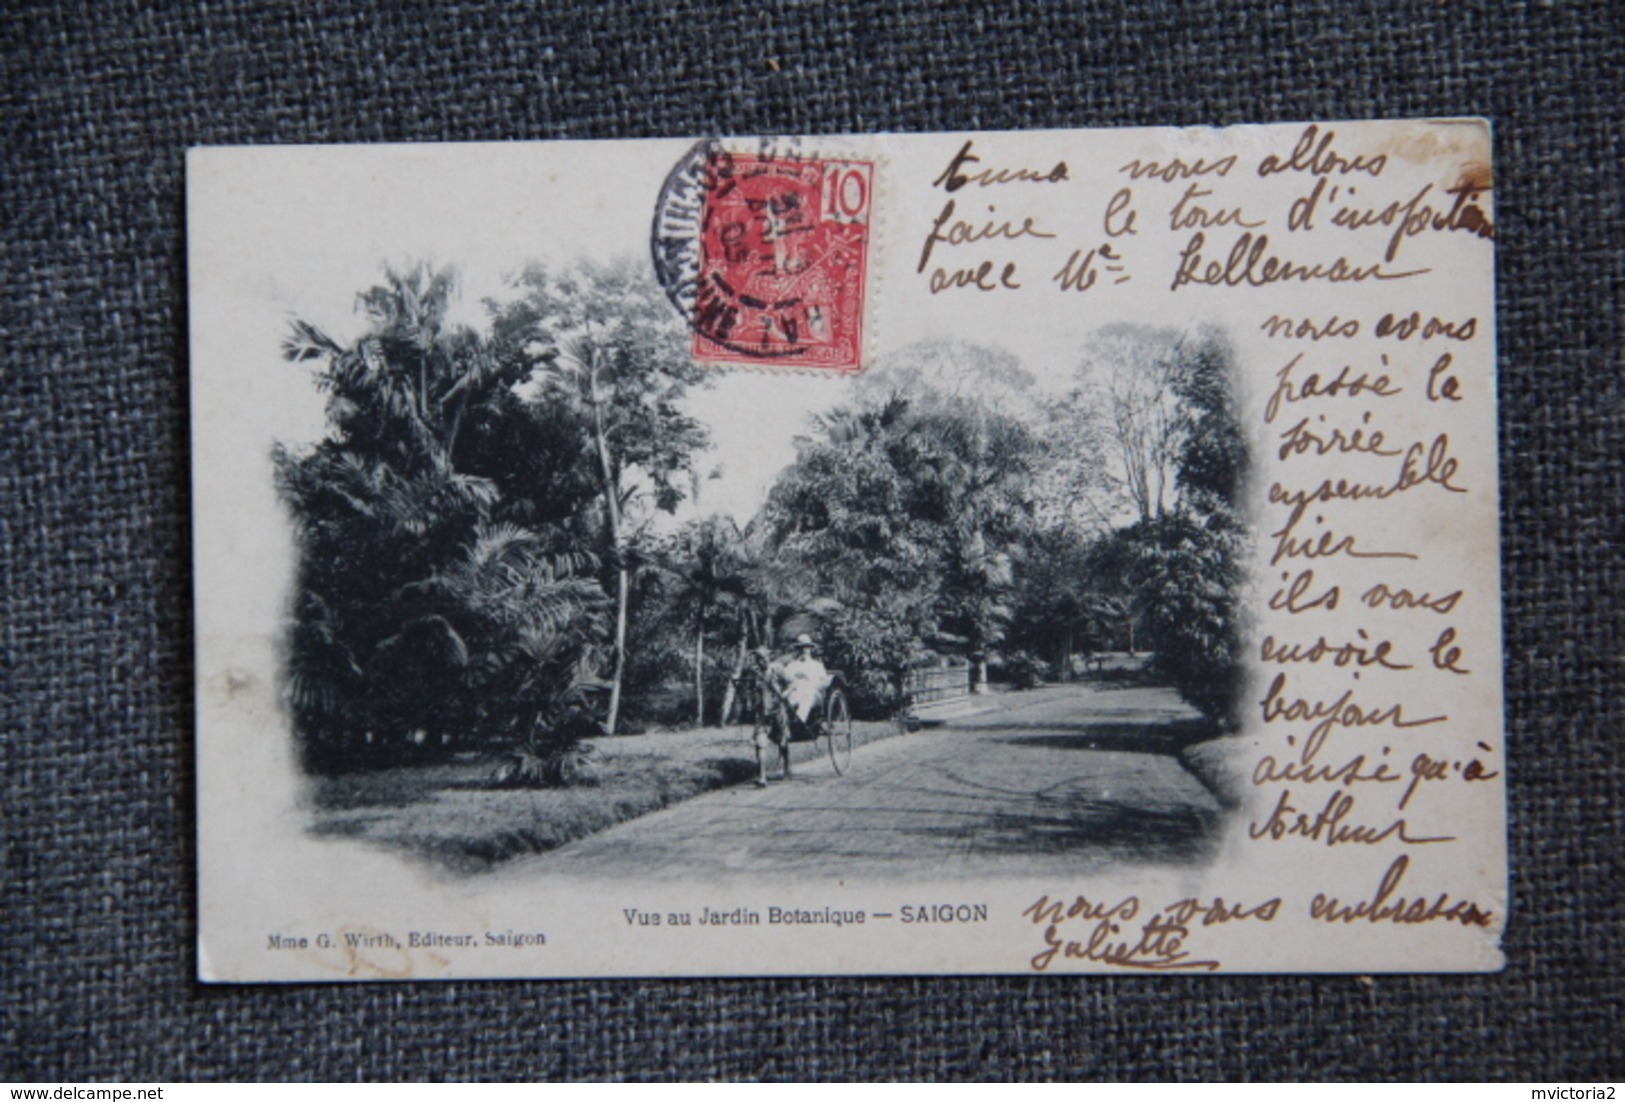 10
COCHINCHINE
31
AOUT
05
Anna nous allons
faire le tour d'inspection
avec Mr Kelleman
nous avons
passé la
soirée
ensemble
hier
ils vous
envoie le
bonjour
ainsi qu'à
Arthur
nous vous embrassons
Juliette
Vue au Jardin Botanique — SAIGON
Mme G. Wirth, Editeur, Saïgon
delcampe.net
mvictoria2